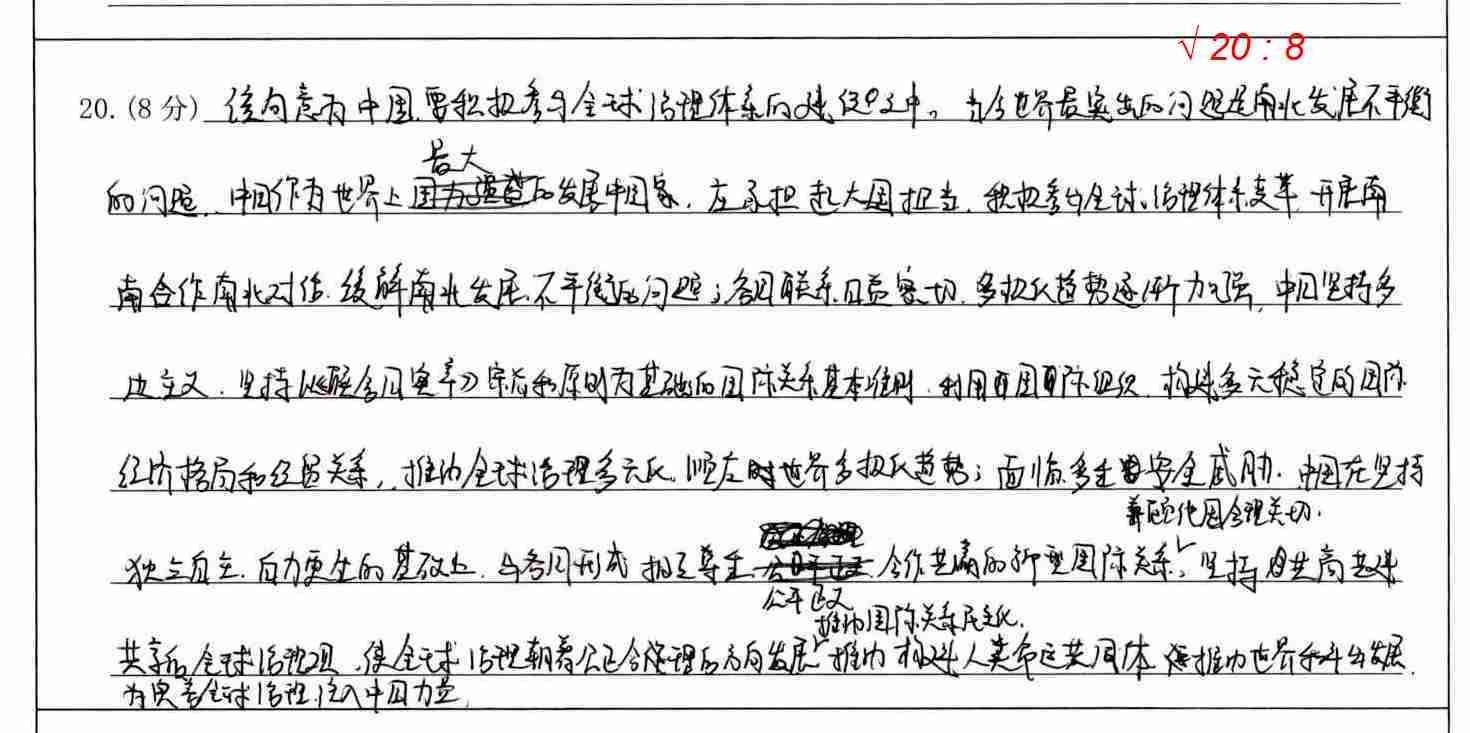 √ 20 : 8
20. (8 分) 该句意为中国要积极参与全球治理体系的建设之中。当今世界最突出的问题是南北发展不平衡
最大
的问题,中国作为世界上的发展中国家,应承担起大国担当,积极参与全球治理体系变革,开展南
南合作南北对话,缓解南北发展不平衡的问题;各国联系日益密切,多极化趋势逐渐加强,中国坚持多
边主义,坚持以《联合国宪章》宗旨和原则为基础的国际关系基本准则,利用国际组织,构建多元稳定的国际
经济格局和经贸关系,推动全球治理多元化,顺应世界多极化趋势;面临多重安全威胁,中国在坚持
兼顾他国合理关切,
独立自主、自力更生的基础上,与各国形成相互尊重、合作共赢的新型国际关系,坚持共商共建
公平正义
推动国际关系民主化,
共享的全球治理观,使全球治理朝着公正合理的方向发展,推动构建人类命运共同体,推动世界和平与发展,
为完善全球治理注入中国力量。